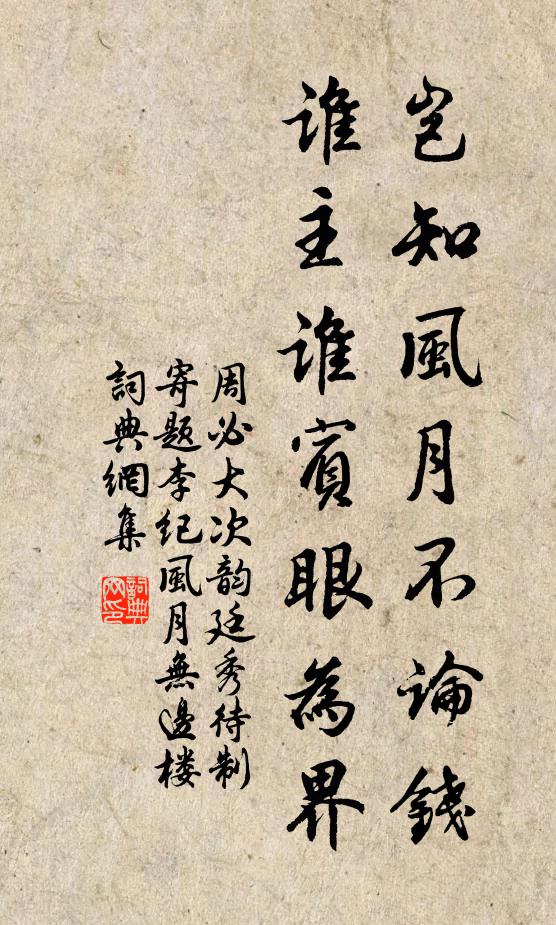 豈知風月不論錢
誰主誰賓眼為界
周必大次韵廷秀待制
寄题李紀風月無邊楼
詞典網集
詞典
网印